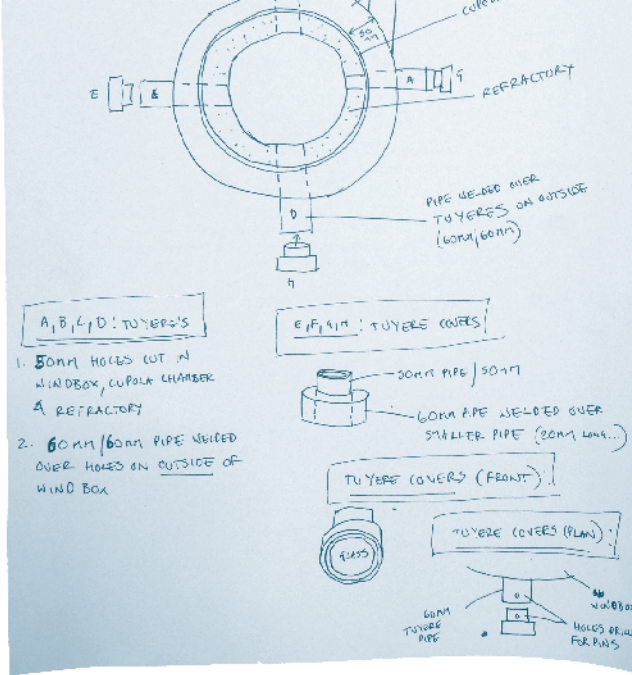 50
MM
E
A
G
REFRACTORY
PIPE WELDED OVER
TUYERES ON OUTSIDE
(60MM/60MM)
D
A, B, C, D: TUYERE'S
1. 50MM HOLES CUT IN
WINDBOX, CUPOLA CHAMBER
& REFRACTORY
2. 60MM/60MM PIPE WELDED
OVER HOLES ON OUTSIDE OF
WIND BOX
E, F, G, H: TUYERE COVERS
50MM PIPE/50MM
60MM PIPE WELDED OVER
SMALLER PIPE (20MM LONG...)
TUYERE COVERS (FRONT):
GLASS
TUYERE COVERS (PLAN):
WINDBOX
60MM
TUYERE
PIPE
HOLES
FOR PINS